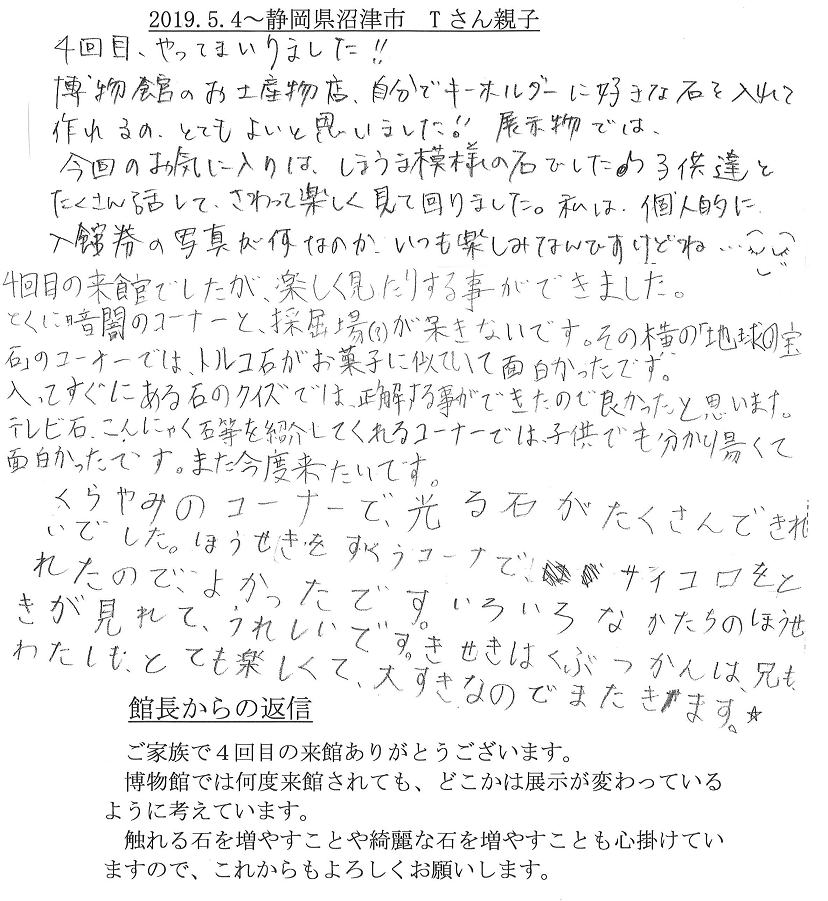 2019.5.4～静岡県沼津市　Tさん親子
4回目、やってまいりました!!
博物館のお土産物店、自分でキーホルダーに好きな石を入れて
作れるの、とてもよいと思いました!! 展示物では、
今回のお気に入りは、しまうま模様の石でした♪ 子供達と
たくさん話して、さわって楽しく見て回りました。私は、個人的に
入館券の写真が何なのか、いつも楽しみなんですけどね…
4回目の来館でしたが、楽しく見たりする事ができました。
とくに暗闇のコーナーと、採屈場(?)が呆きないです。その横の「地球の宝
石」のコーナーでは、トルコ石がお菓子に似ていて面白かったです。
入ってすぐにある石のクイズでは、正解する事ができたので良かったと思います。
テレビ石、こんにゃく石等を紹介してくれるコーナーでは、子供でも分かり易くて
面白かったです。また今度来たいです。
くらやみのコーナーで、光る石がたくさんできれ
いでした。ほうせきをすくうコーナで、サイコロをと
れたので、よかったです。いろいろなかたちのほうせ
きが見れて、うれしいです。きせきはくぶつかんは、兄も、
わたしも、とても楽しくて、大すきなのでまたきます。☆
館長からの返信
ご家族で４回目の来館ありがとうございます。
博物館では何度来館されても、どこかは展示が変わっている
ように考えています。
触れる石を増やすことや綺麗な石を増やすことも心掛けてい
ますので、これからもよろしくお願いします。